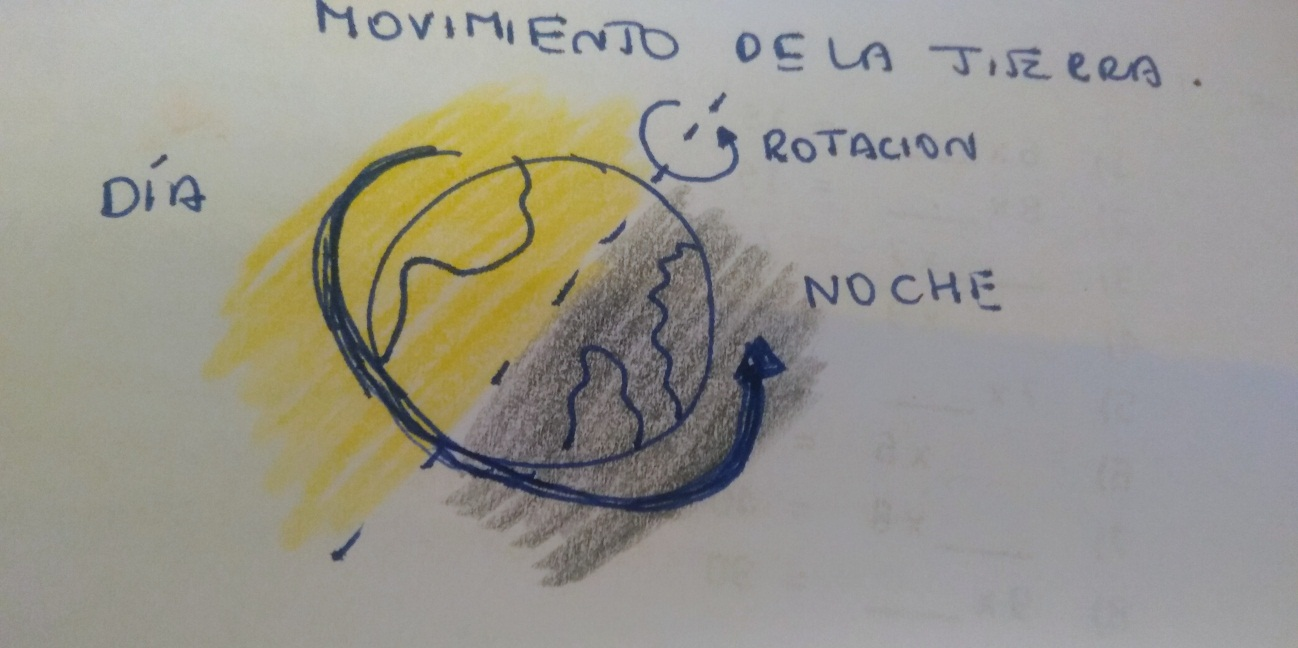 MOVIMIENTO DE LA TIERRA.
ROTACION
DÍA
NOCHE